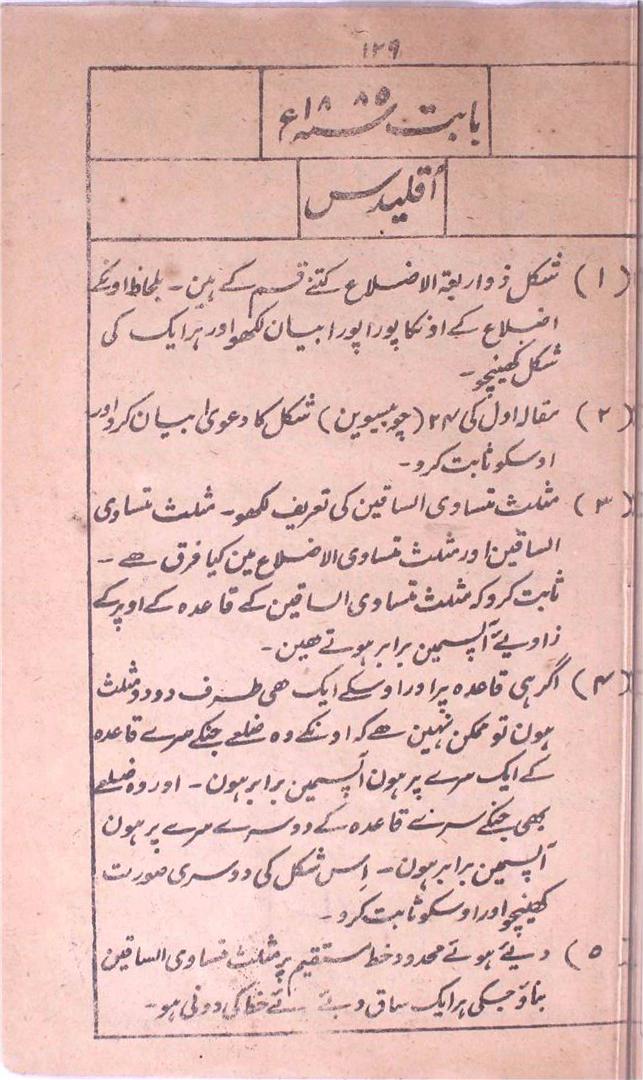 ۱۲۹
بابت ۱۸۸۵ء
اُقلیدس
(۱) شکل ذو اربعۃ الاضلاع کتنے قسم کے ہین۔ بلحاظ اونکے
اضلاع کے اونکا پورا پورا بیان لکھو اور ہر ایک کی
شکل کھینچو۔
(۲) مقالہ اول کی ۲۴ (چوبیسوین) شکل کا دعویٰ بیان کرو اور
اوسکو ثابت کرو۔
(۳) مثلث متساوی الساقین کی تعریف لکھو۔ مثلث متساوی
الساقین اور مثلث متساوی الاضلاع مین کیا فرق ہے۔
ثابت کرو کہ مثلث متساوی الساقین کے قاعدہ کے اوپر کے
زاویے آپسمین برابر ہوتے ہین۔
(۴) اگر ہی قاعدہ پر اور اوسکے ایک ہی طرف دو دو مثلث
ہون تو ممکن نہین ہے کہ اونکے وہ ضلعے جنکے سرے قاعدہ
کے ایک سرے پر ہون آپسمین برابر ہون۔ اور وہ ضلعے
بھی جنکے سرے قاعدہ کے دوسرے سرے پر ہون
آپسمین برابر ہون۔ اِس شکل کی دوسری صورت
کھینچو اور اوسکو ثابت کرو۔
۵) دیئے ہوئے محدود خط مستقیم پر مثلث متساوی الساقین
بناؤ جسکی ہر ایک ساق دیئے خط کی دونی ہو۔